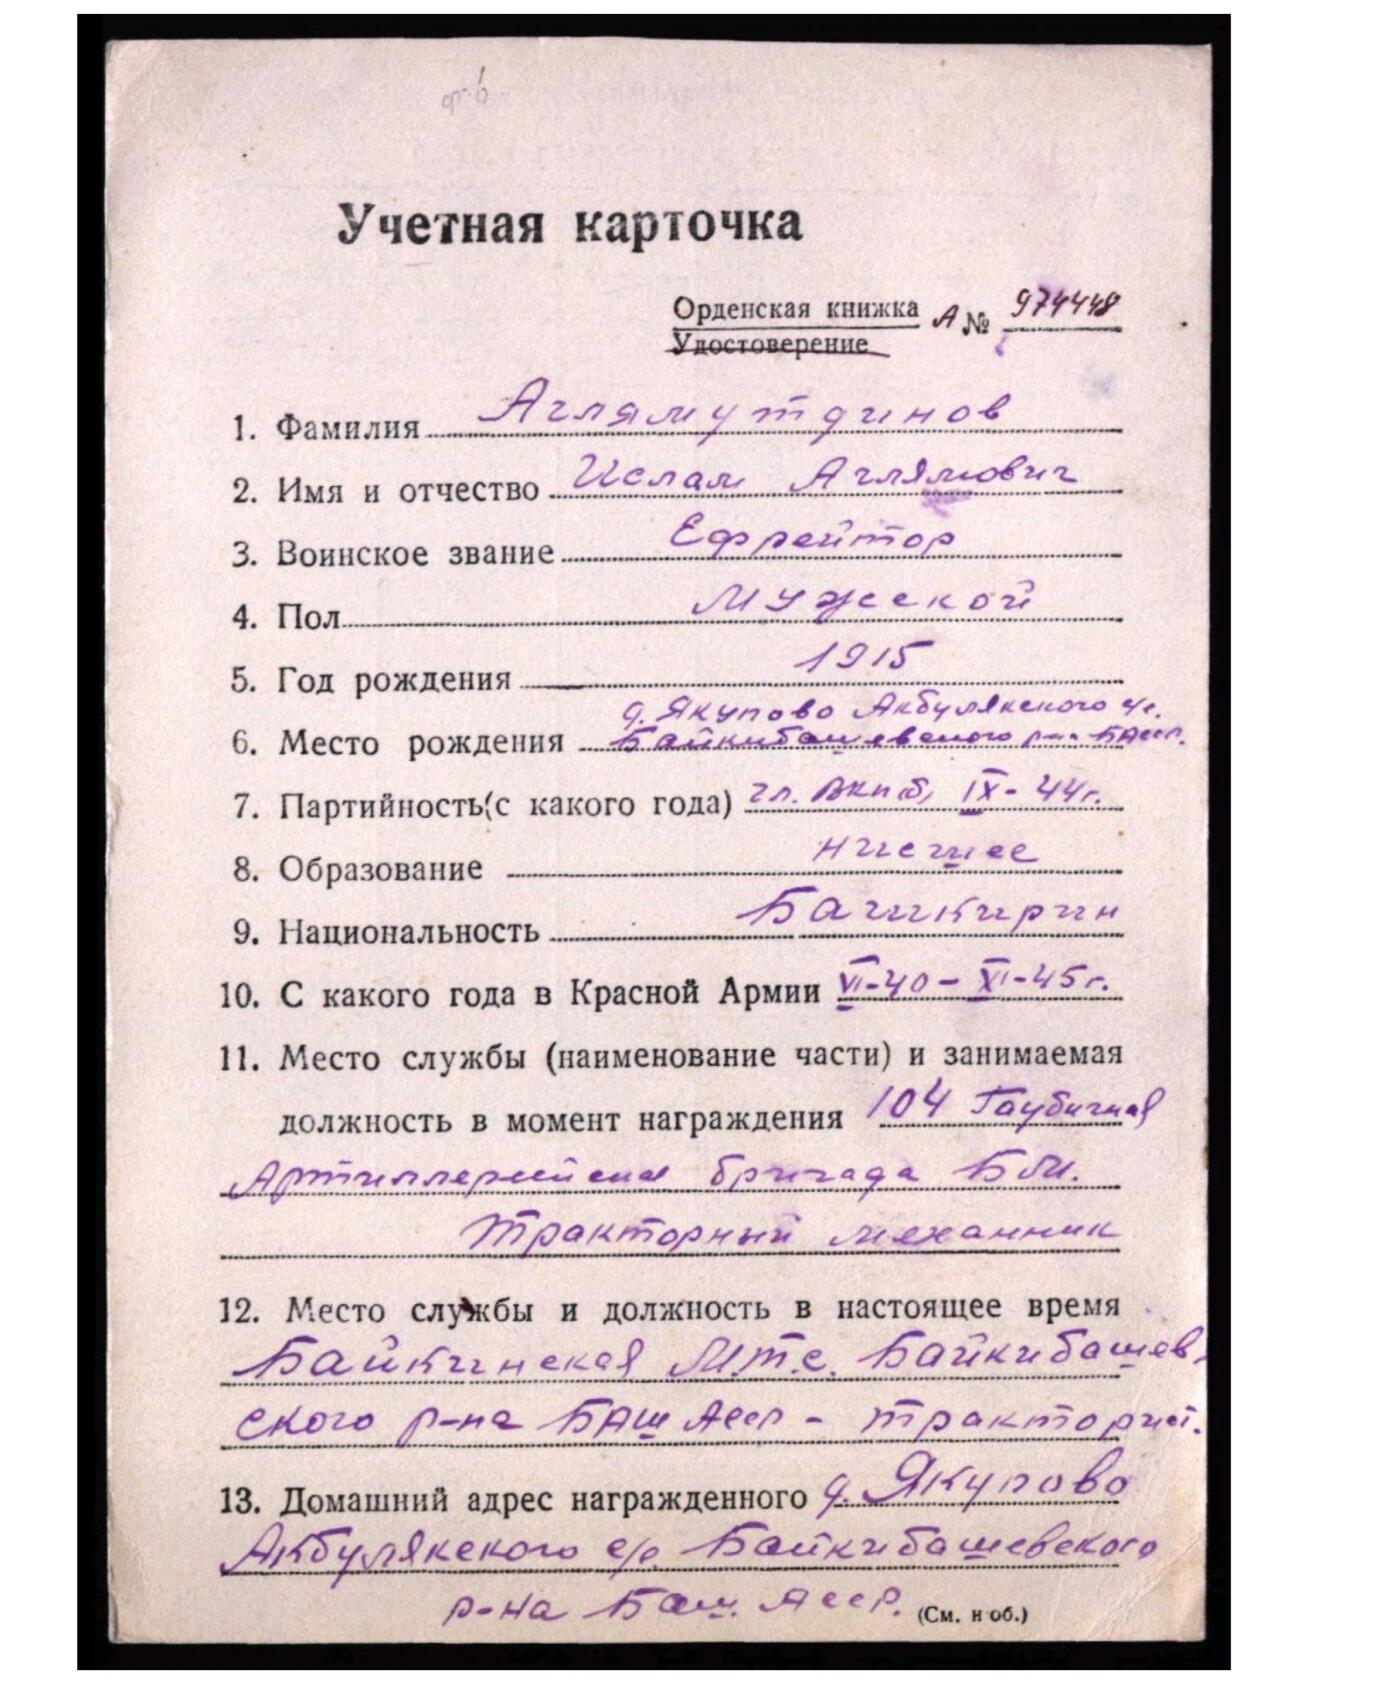 Учетная карточка
Орденская книжка А № 974448
Удостоверение
1. Фамилия Аглямутдинов
2. Имя и отчество Ислам Аглямович
3. Воинское звание Ефрейтор
4. Пол Мужской
5. Год рождения 1915
д. Якупово Акбулякского
6. Место рождения Байкибашевского р-на БАССР.
7. Партийность (с какого года) чл. ВКПб, IX-44г.
8. Образование низшее
9. Национальность Башкирин
10. С какого года в Красной Армии VI-40 - XI-45г.
11. Место службы (наименование части) и занимаемая
должность в момент награждения 104 Гаубичная
Артиллерийская бригада БМ.
Тракторный механник
12. Место службы и должность в настоящее время
Байкинская М.Т.С. Байкибашев-
ского р-на БАШ АССР - тракторист.
13. Домашний адрес награжденного д. Якупово
Акбулякского с/с Байкибашевского
р-на Баш. АССР. (См. н об.)